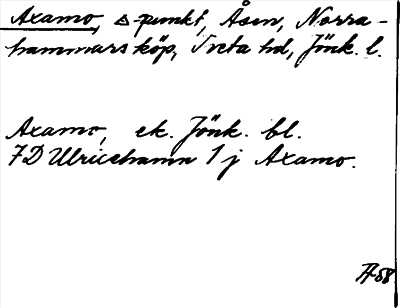 Axamo, △ punkt, Åsen, Norra-
hammars köp, Tveta hd, Jönk. l.
Axamo, ek. Jönk. bl.
7D Ulricehamn 1 j Axamo.